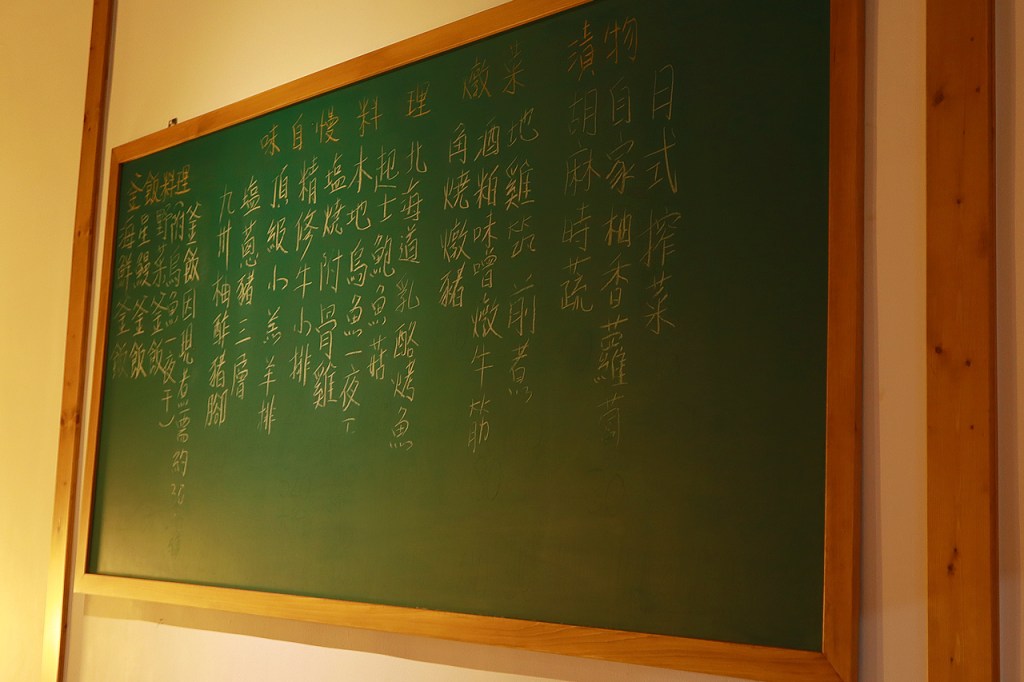 漬物
日式搾菜
自家柚香蘿蔔
胡麻時蔬
燉菜
地雞筑前煮
酒粕味噌燉牛筋
角燒燉豬
味自慢料理
北海道乳酪烤魚
起士鮑魚菇
本地烏魚一夜干
塩燒附骨雞
精修牛小排
頂級小羔羊排
塩蔥豬三層
九卅柚酢豬腳
釜飯料理
釜飯因現煮需約20
(附烏魚一夜干)
野菜釜飯
星鰻釜飯
海鮮釜飯